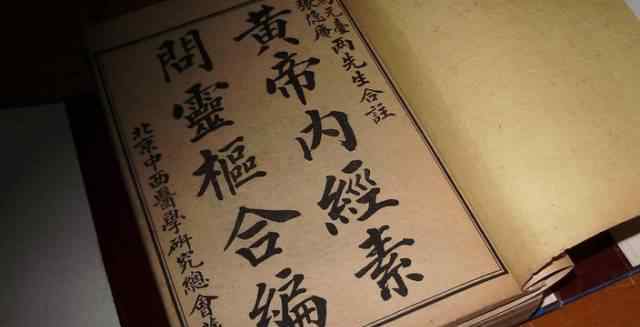 元臺
張隱庵
兩先生合註
黃帝內經素
問靈樞合編
北京中西醫學研究總會